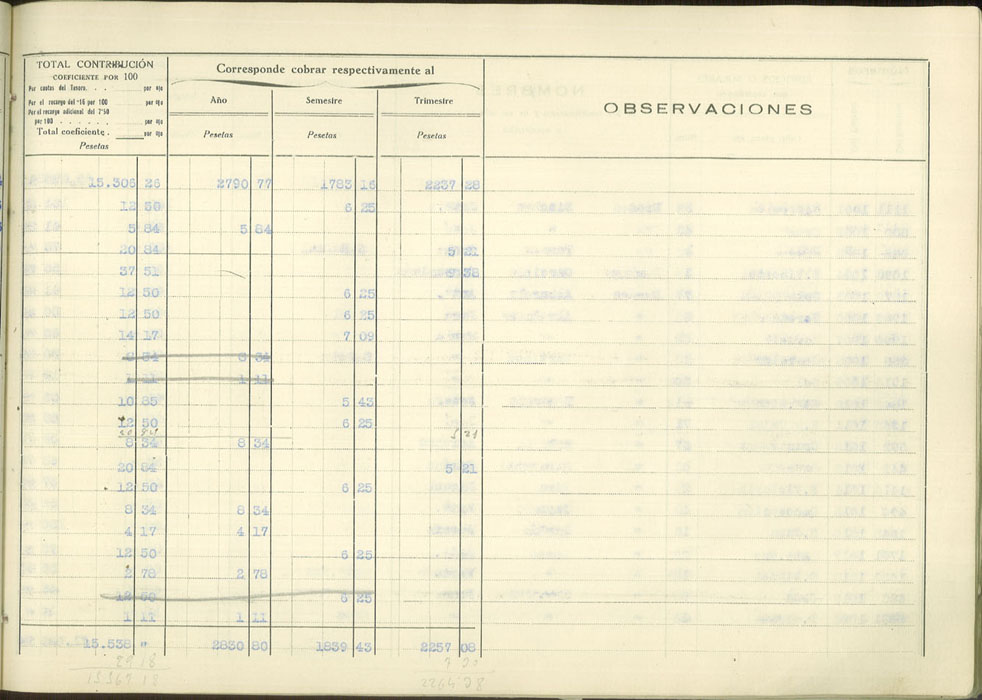 TOTAL CONTRIBUCIÓN
COEFICIENTE POR 100
Por cuotas del Tesoro. . . por %
Por el recargo del 16 por 100 por %
Por el recargo adicional del 7'50
por 100 . . . . . . por %
Total coeficiente. por %
Pesetas
Corresponde cobrar respectivamente al
Año Semestre Trimestre
Pesetas Pesetas Pesetas
OBSERVACIONES
15.306 26 2790 77 1783 16 2237 28
12 50 6 25
5 84 5 84
20 84 5 21
37 51 9 38
12 50 6 25
12 50 6 25
14 17 7 09
8 34 8 34
1 11 1 11
10 85 5 43
12 50 6 25
5 21
8 34 8 34
20 84 5 21
12 50 6 25
8 34 8 34
4 17 4 17
12 50 6 25
2 78 2 78
12 50 6 25
1 11 1 11
15.538 " 2830 80 1839 43 2257 08
29 18
15567 18
2264 28